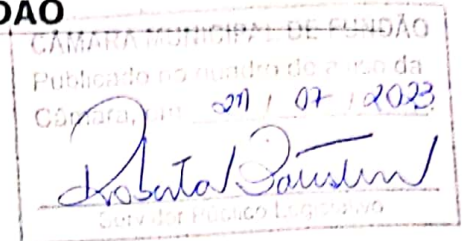 DÃO
CÂMARA MUNICIPAL DE FUNDÃO
Publicado no quadro de aviso da
Câmara, em / 07 / 2023
Roberta
Servidor Público Legislativo